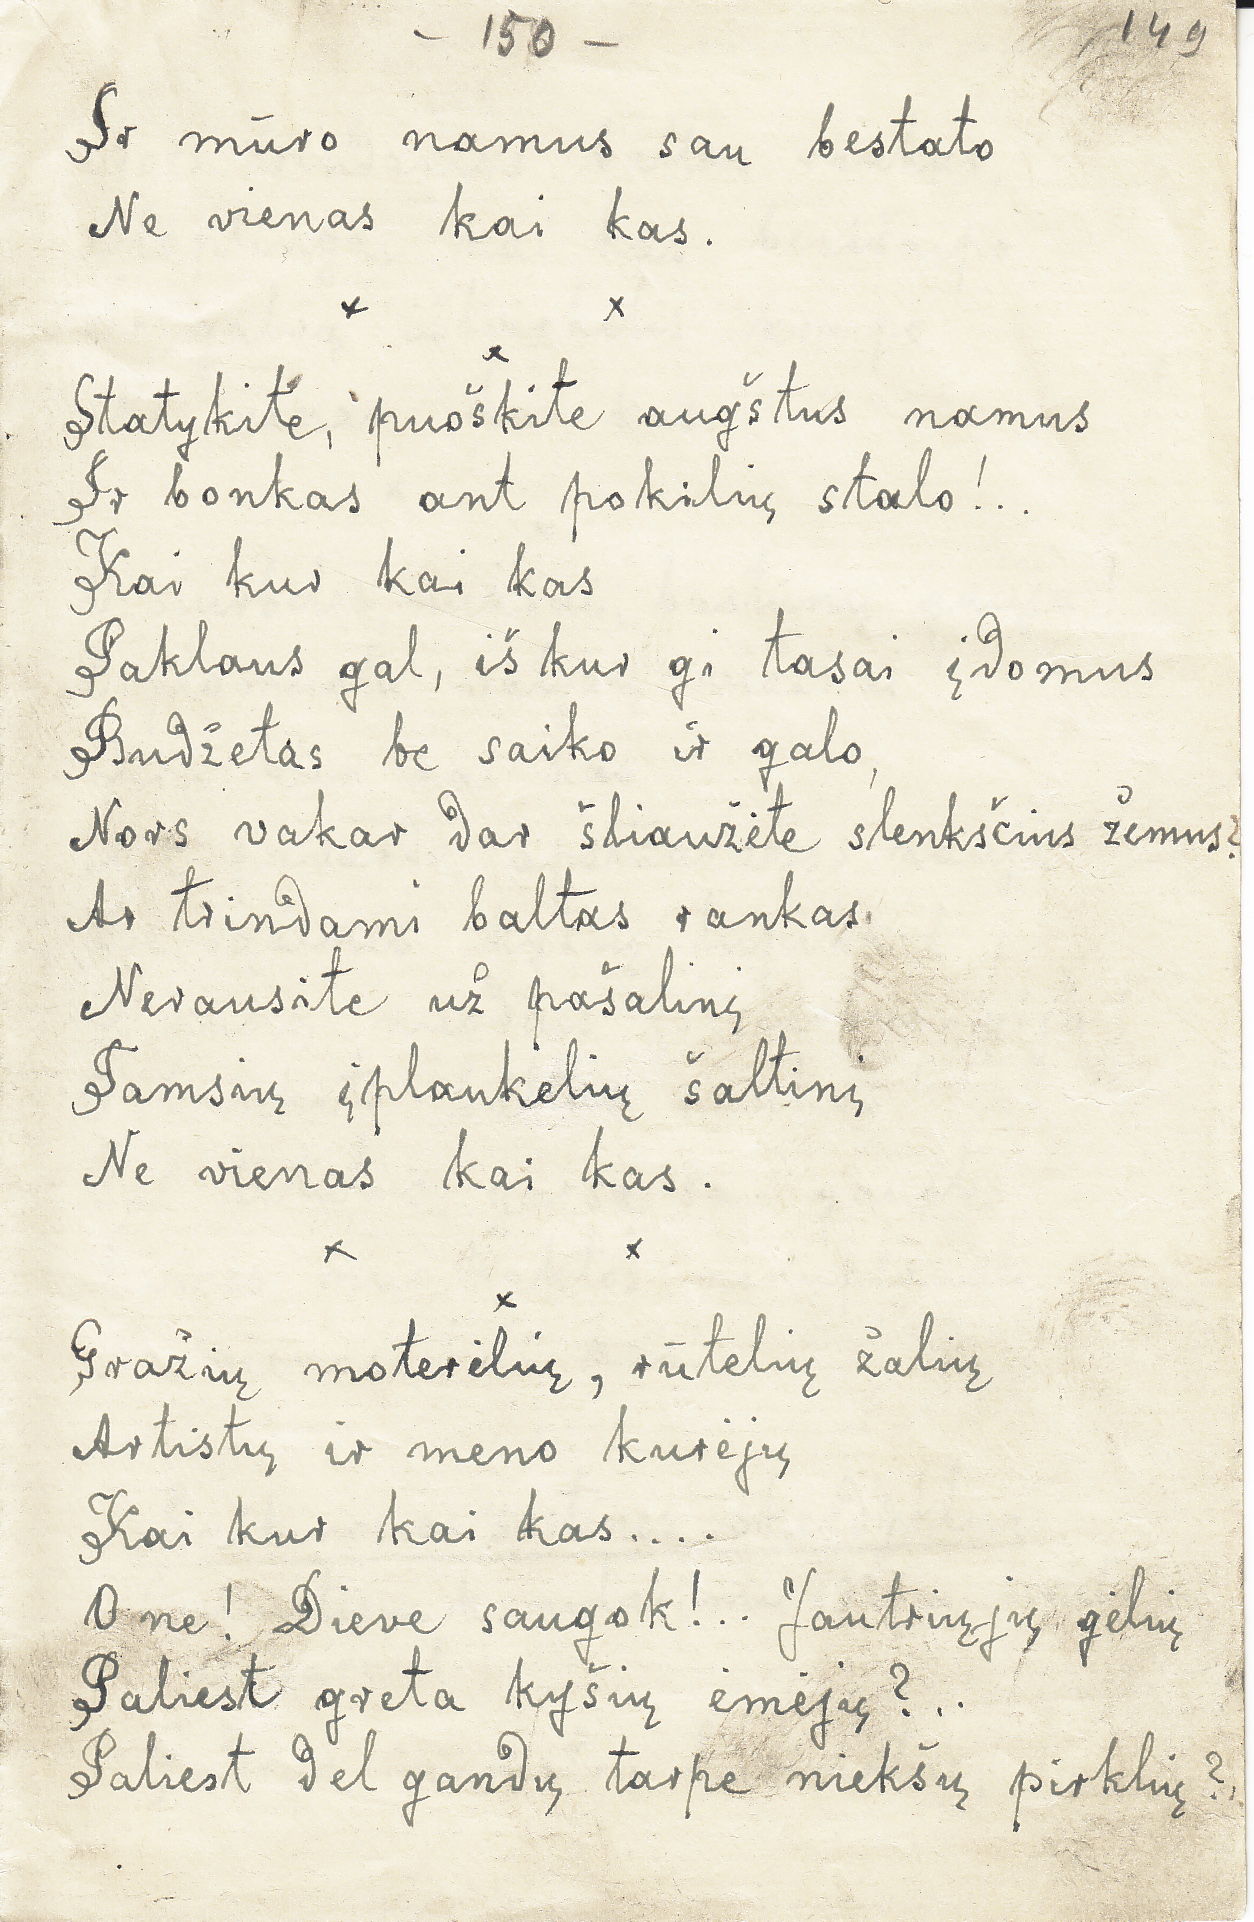 - 150 -
149
Ir mūro namus sau bestato
Ne vienas kai kas.
x x
x
Statykite, puoškite augštus namus
Ir bonkas ant pokilių stalo!..
Kai kur kai kas
Paklaus gal, iš kur gi tasai įdomus
Budžetas be saiko ir galo,
Nors vakar dar šliaužėte slenkščius žemus?
Ar trindami baltas rankas
Nerausite už pašalinį
Tamsių įplaukėlių šaltinį
Ne vienas kai kas.
x x
x
Gražių moterėlių, rūtelių žalių
Artistų ir meno kurėjų
Kai kur kai kas....
O ne! Dieve saugok!.. Jautriųjų gėlių
Paliest greta kyšių ėmėjų?..
Paliest dėl gandų tarpe niekšų pirklių?.